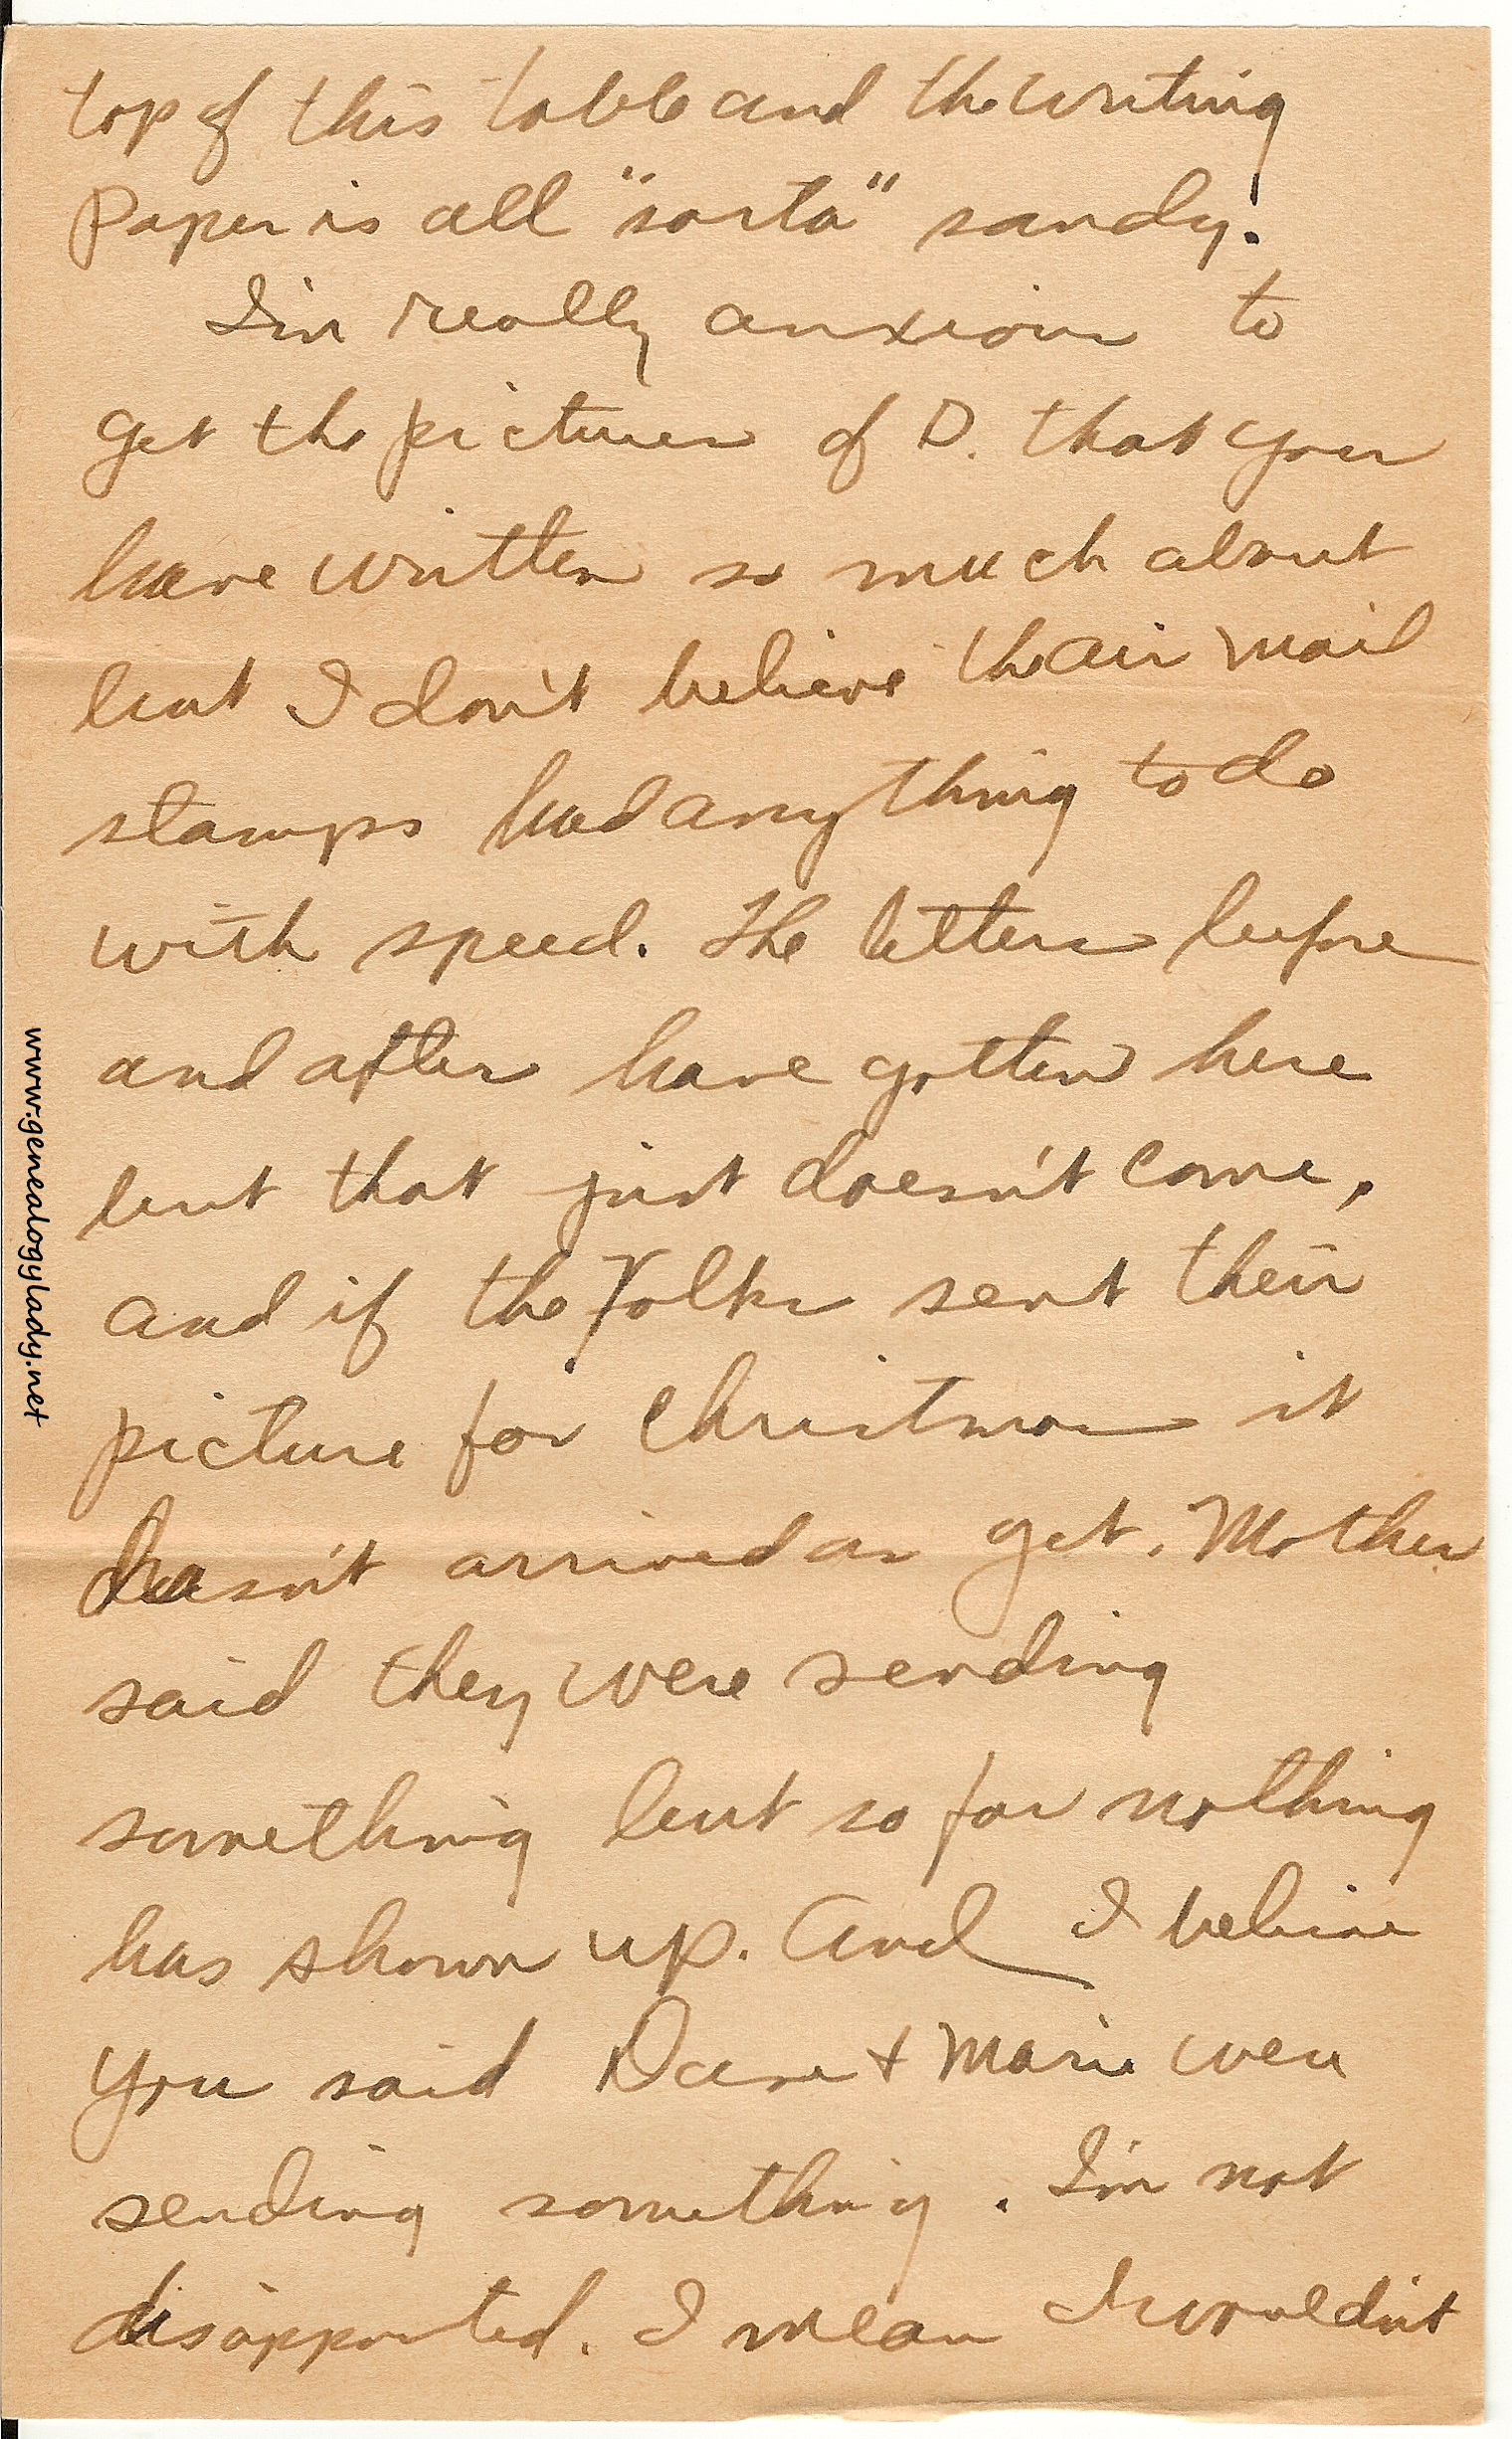 top of this table and the writing
Paper is all "sorta" sandy.
I'm really anxious to
get the pictures of D. that you
have written so much about
but I don't believe the air mail
stamps had anything to do
with speed. The letters before
and after have gotten here
but that just doesn't come,
and if the Folks sent their
picture for Christmas it
hasn't arrived as yet. Mother
said they were sending
something but so far nothing
has shown up. And I believe
you said Dave & Marie were
sending something. I'm not
disappointed. I mean I wouldn't
www.genealogylady.net